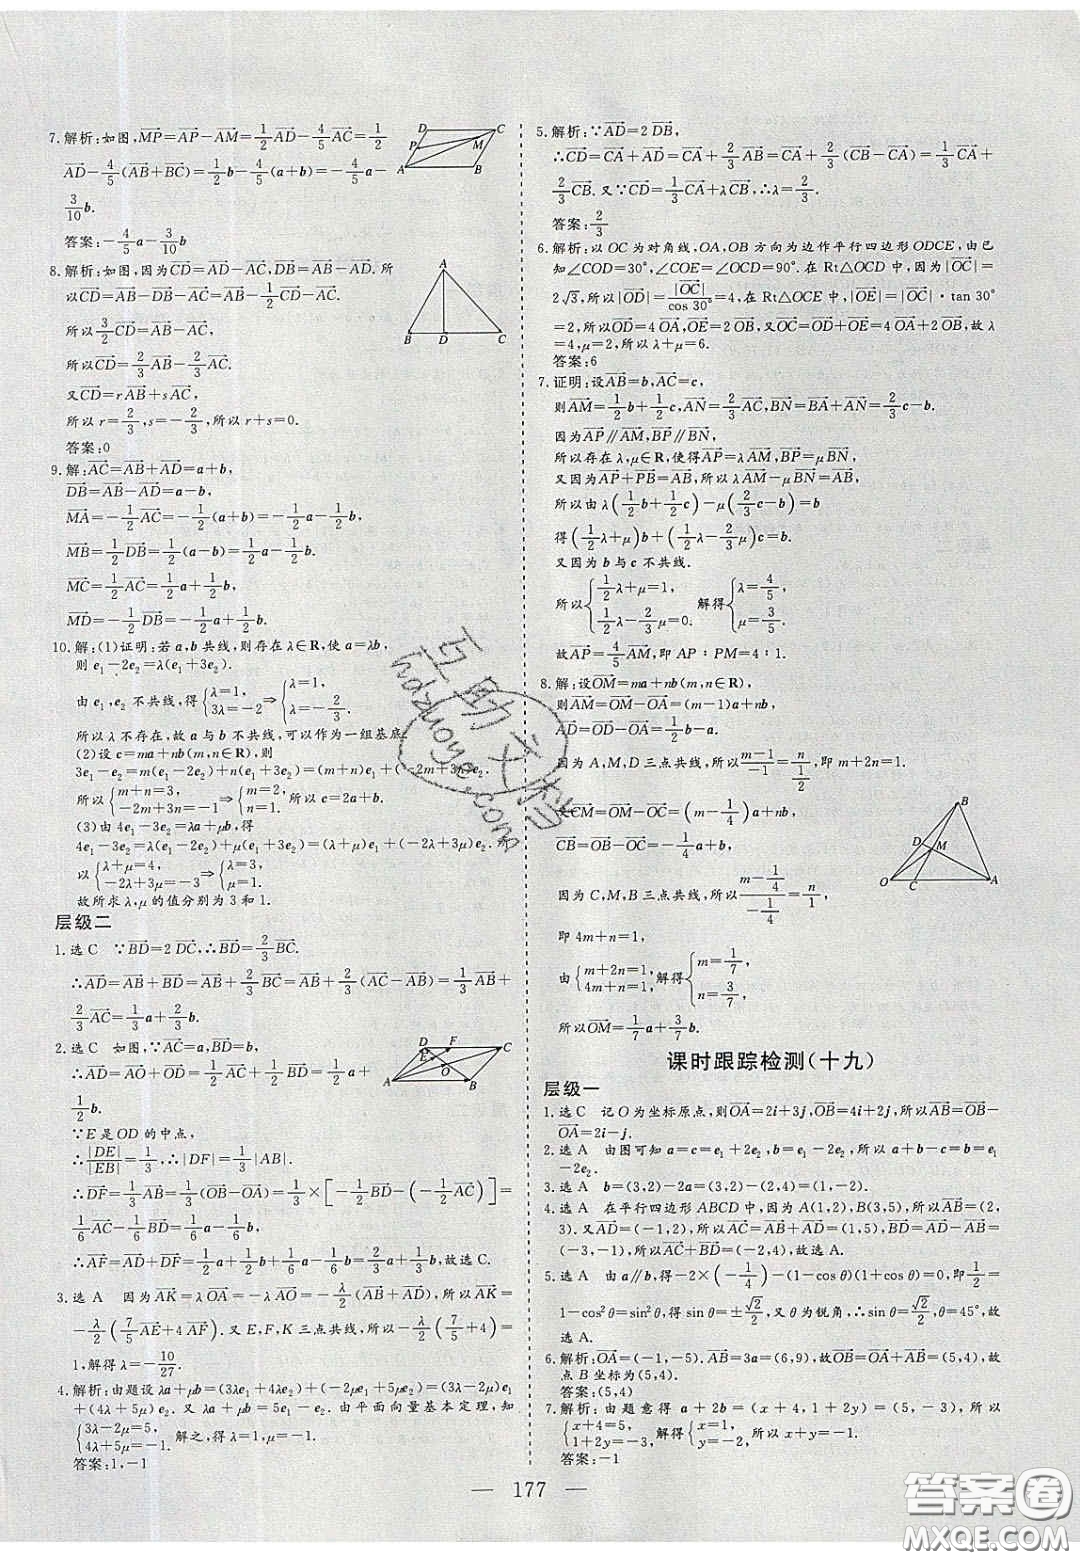 7.解析:如图,MP=AP-AM=1/2AD-4/5AC=1/2
AD-4/5(AB+BC)=1/2b-4/5(a+b)=-4/5a-
3/10b.
答案:-4/5a-3/10b
8.解析:如图,因为CD=AD-AC,DB=AB-AD.所
以CD=AB-DB-AC=AB-1/2CD-AC.
所以3/2CD=AB-AC,
所以CD=2/3AB-2/3AC.
又CD=rAB+sAC,
所以r=2/3,s=-2/3,所以r+s=0.
答案:0
9.解:AC=AB+AD=a+b,
DB=AB-AD=a-b,
MA=-1/2AC=-1/2(a+b)=-1/2a-1/2b,
MB=1/2DB=1/2(a-b)=1/2a-1/2b.
MC=1/2AC=1/2a+1/2b,
MD=-1/2DB=-1/2a+1/2b.
10.解:(1)证明:若a,b共线,则存在λ∈R,使a=λb,
则e₁-2e₂=λ(e₁+3e₂).
由e₁,e₂不共线,得{λ=1, 3λ=-2⇒{λ=1, λ=-2/3.
所以λ不存在,故a与b不共线,可以作为一组基底.
(2)设c=ma+nb(m,n∈R),则
3e₁-e₂=m(e₁-2e₂)+n(e₁+3e₂)=(m+n)e₁+(-2m+3n)e₂.
所以{m+n=3, -2m+3n=-1⇒{m=2, n=1.所以c=2a+b.
(3)由4e₁-3e₂=λa+μb,得
4e₁-3e₂=λ(e₁-2e₂)+μ(e₁+3e₂)=(λ+μ)e₁+(-2λ+3μ)e₂.所
以{λ+μ=4, -2λ+3μ=-3⇒{λ=3, μ=1.
故所求λ,μ的值分别为3和1.
层级二
1.选C ∵BD=2DC,∴BD=2/3BC.
∴AD=AB+BD=AB+2/3BC=AB+2/3(AC-AB)=1/3AB+
2/3AC=1/3a+2/3b.
2.选C 如图,∵AC=a,BD=b,
∴AD=AO+OD=1/2AC+1/2BD=1/2a+
1/2b.
∵E是OD的中点,
∴|DE|/|EB|=1/3,∴|DF|=1/3|AB|.
∴DF=1/3AB=1/3(OB-OA)=1/3×[-1/2BD-(-1/2AC)]=
1/6AC-1/6BD=1/6a-1/6b,
∴AF=AD+DF=1/2a+1/2b+1/6a-1/6b=2/3a+1/3b,故选C.
3.选A 因为AK=λOA=-λAO=-λ/2(AB+AD),所以AK=
-λ/2(7/5AE+4AF).又E,F,K三点共线,所以-λ/2(7/5+4)=
1,解得λ=-10/27.
4.解析:由题设λa+μb=(3λe₁+4λe₂)+(-2μe₁+5μe₂)=(3λ-2μ)e₁
+(4λ+5μ)e₂.又λa+μb=5e₁-e₂.由平面向量基本定理,知
{3λ-2μ=5, 4λ+5μ=-1.解之,得λ=1,μ=-1.
答案:1,-1
5.解析:∵AD=2DB,
∴CD=CA+AD=CA+2/3AB=CA+2/3(CB-CA)=1/3CA
+2/3CB.又∵CD=1/3CA+λCB,∴λ=2/3.
答案:2/3
6.解析:以OC为对角线,OA,OB方向为边作平行四边形ODCE,由已
知∠COD=30°,∠COE=∠OCD=90°.在Rt△OCD中,因为|OC|=
2√3,所以|OD|=|OC|/cos 30°=4,在Rt△OCE中,|OE|=|OC|·tan 30°
=2,所以OD=4OA,OE=2OB,又OC=OD+OE=4OA+2OB,故λ=
4,μ=2,所以λ+μ=6.
答案:6
7.证明:设AB=b,AC=c,
则AM=1/2b+1/2c,AN=2/3AC,BN=BA+AN=2/3c-b.
因为AP∥AM,BP∥BN,
所以存在λ,μ∈R,使得AP=λAM,BP=μBN,
又因为AP+PB=AB,所以λAM-μBN=AB,
所以由λ(1/2b+1/2c)-μ(2/3c-b)=b
得(1/2λ+μ)b+(1/2λ-2/3μ)c=b.
又因为b与c不共线.
所以{1/2λ+μ=1, 1/2λ-2/3μ=0.解得{λ=4/5, μ=3/5.
故AP=4/5AM,即AP∶PM=4∶1.
8.解:设OM=ma+nb(m,n∈R),
则AM=OM-OA=(m-1)a+nb,
AD=OD-OA=1/2b-a.
因为A,M,D三点共线,所以m-1/-1=n/1/2,即m+2n=1.
又CM=OM-OC=(m-1/4)a+nb,
CB=OB-OC=-1/4a+b,
因为C,M,B三点共线,所以m-1/4/-1/4=n/1,
即4m+n=1.
由{m+2n=1, 4m+n=1,解得{m=1/7, n=3/7,
所以OM=1/7a+3/7b.
课时跟踪检测(十九)
层级一
1.选C 记O为坐标原点,则OA=2i+3j,OB=4i+2j,所以AB=OB-
OA=2i-j.
2.选A 由图可知a=e₁+2e₂,b=e₁-2e₂,所以a+b=(e₁+2e₂)+(e₁
-2e₂).
3.选A b=(3,2)-2a=(3,2)-(2,4)=(1,-2).
4.选A 在平行四边形ABCD中,因为A(1,2),B(3,5),所以AB=(2,
3).又AD=(-1,2),所以AC=AB+AD=(1,5),BD=AD-AB=
(-3,-1),所以AC+BD=(-2,4),故选A.
5.选A 由a∥b,得-2×(-1/4)-(1-cosθ)(1+cosθ)=0,即1/2=
1-cos²θ=sin²θ,得sinθ=±√2/2,又θ为锐角,∴sinθ=√2/2,θ=45°,故
选A.
6.解析:OA=(-1,-5).AB=3a=(6,9),故OB=OA+AB=(5,4),故
点B坐标为(5,4).
答案:(5,4)
7.解析:由题意得a+2b=(x+4,1+2y)=(5,-3),所以
{x+4=5, 1+2y=-3,解得{x=1, y=-2,所以x+y=-1.
答案:-1
— 177 —
互助文档
hdzuoye.com
答案圈
MXQE.COM